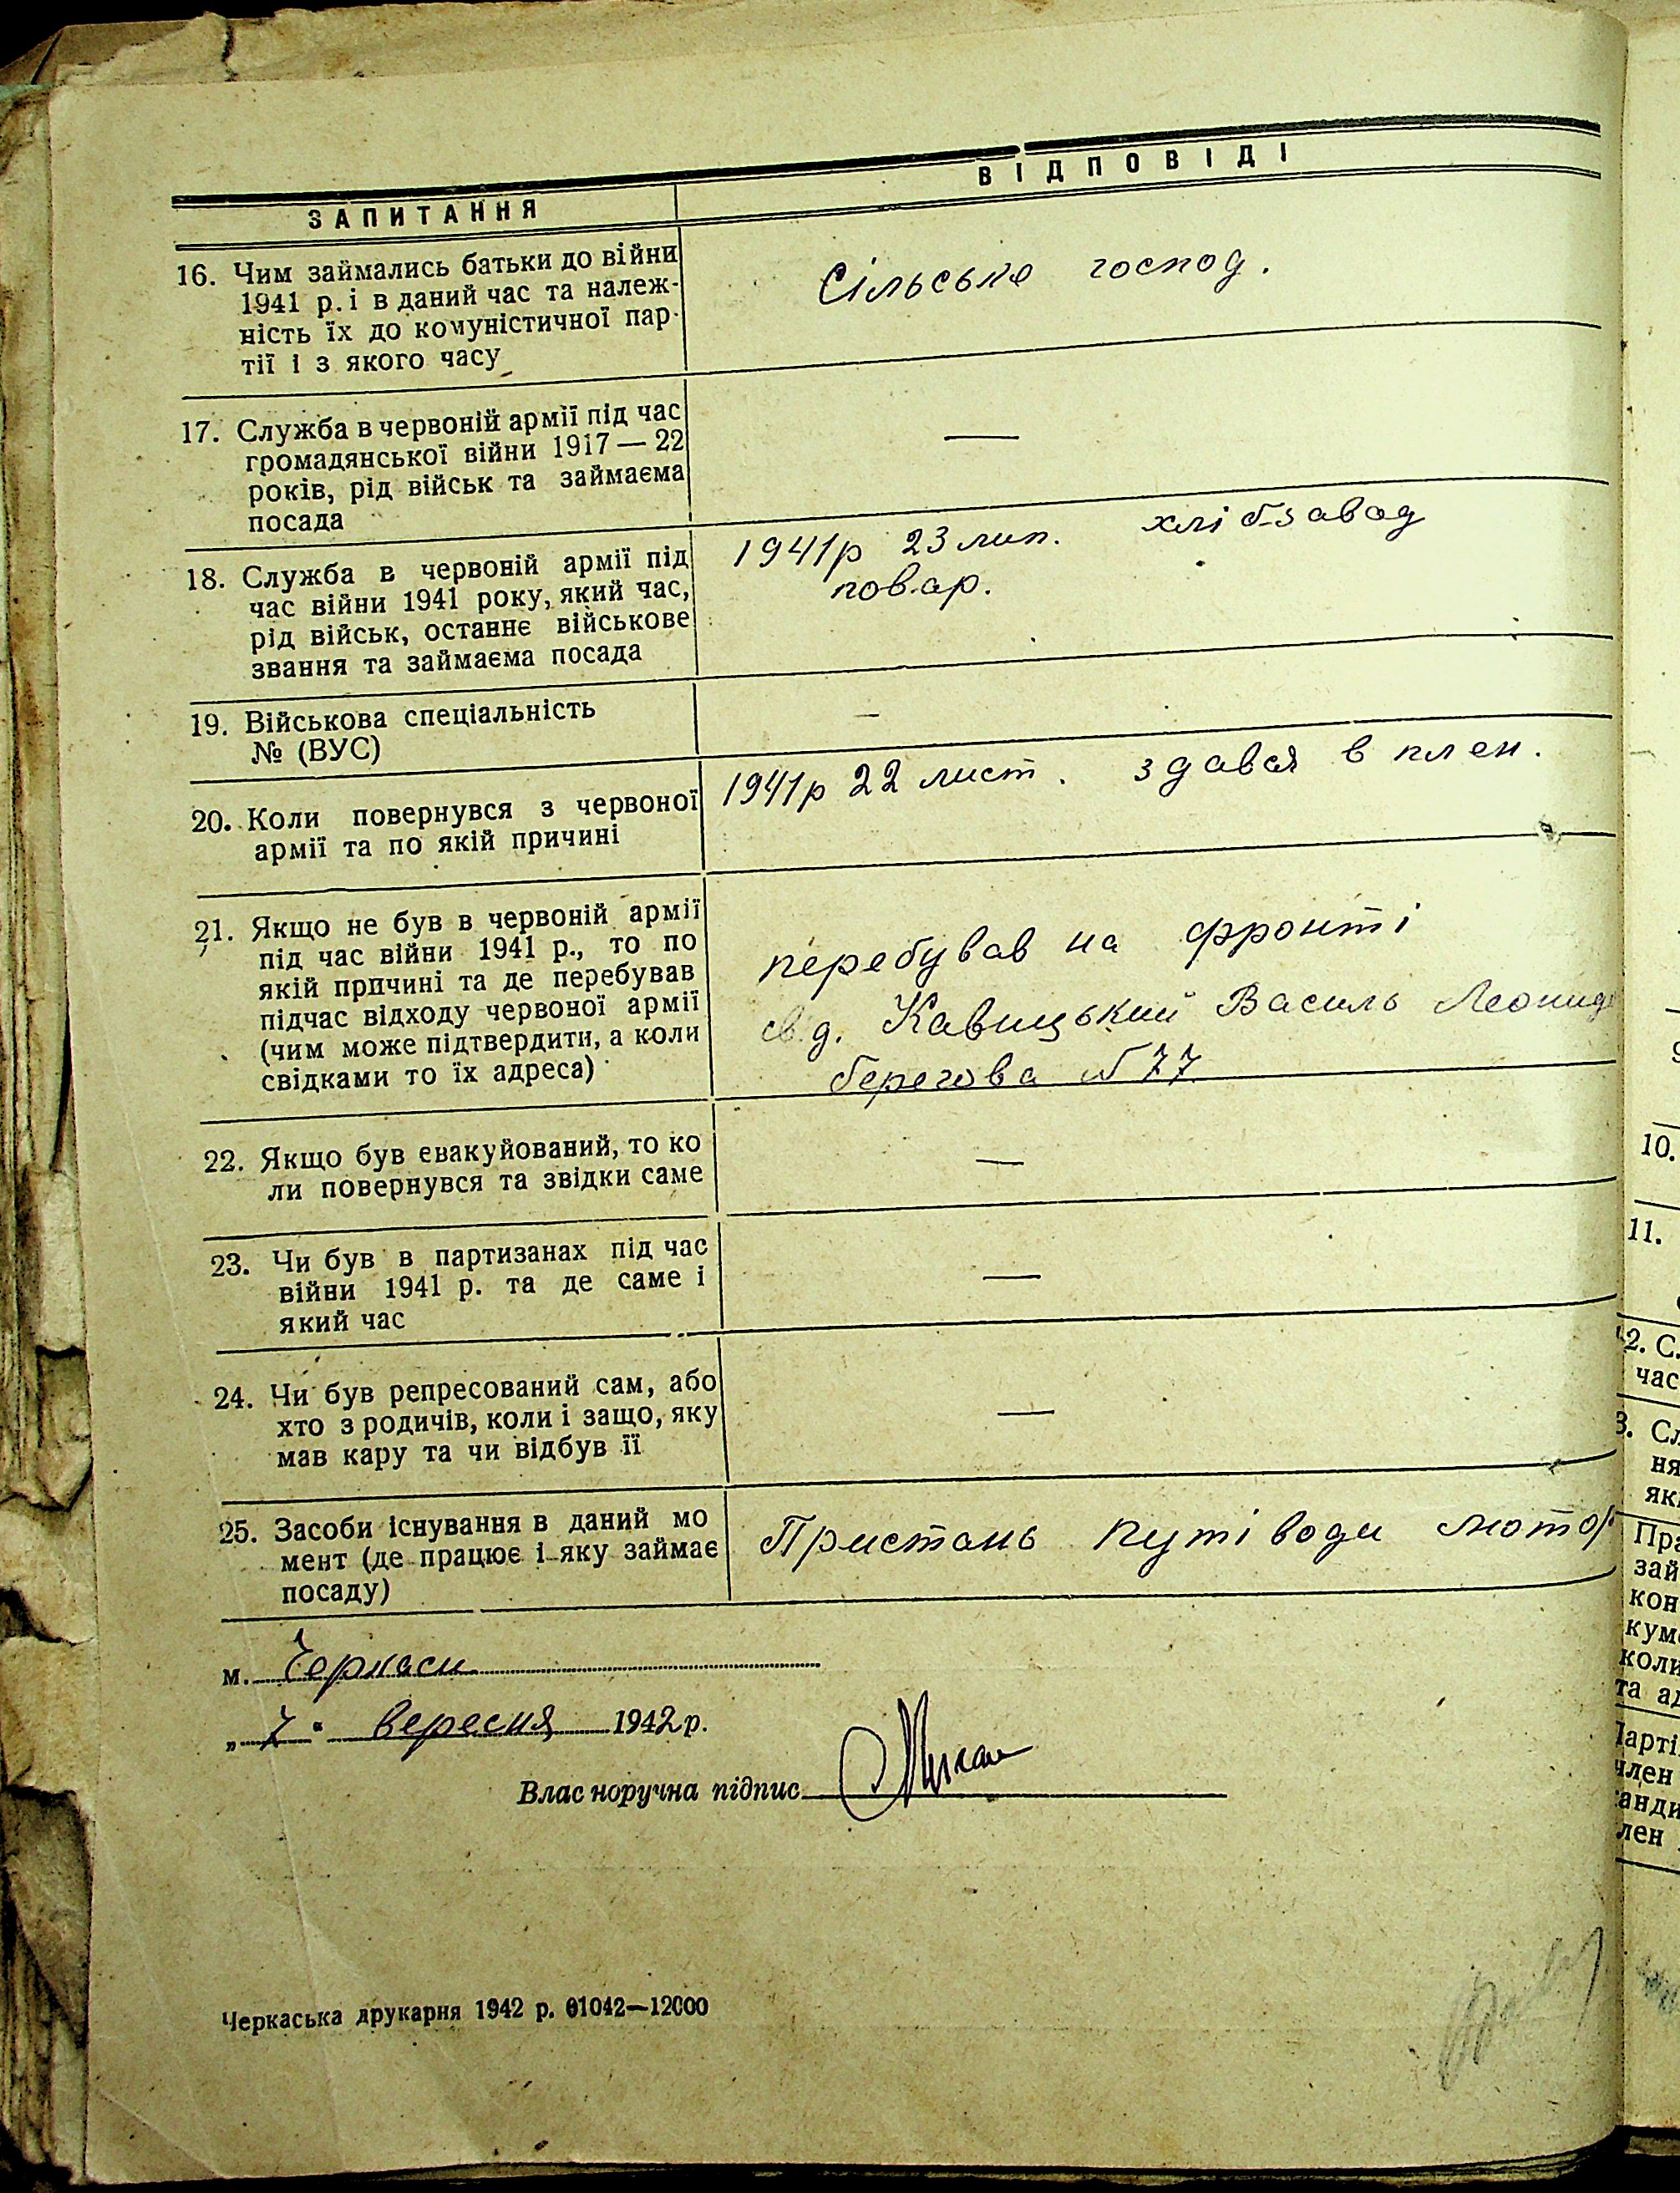 ЗАПИТАННЯ
ВІДПОВІДІ
16. Чим займались батьки до війни
1941 р. і в даний час та належ-
ність їх до комуністичної пар-
тії і з якого часу
Сільське господ.
17. Служба в червоній армії під час
громадянської війни 1917 — 22
років, рід військ та займаєма
посада
—
18. Служба в червоній армії під
час війни 1941 року, який час,
рід військ, останнє військове
звання та займаєма посада
1941р 23 лип. хлібзавод
повар.
19. Військова спеціальність
№ (ВУС)
—
20. Коли повернувся з червоної
армії та по якій причині
1941р 22 лист. здався в плен.
21. Якщо не був в червоній армії
під час війни 1941 р., то по
якій причині та де перебував
підчас відходу червоної армії
(чим може підтвердити, а коли
свідками то їх адреса)
перебував на фронті
свд. Кавицький Василь Леонид
берегова №77
22. Якщо був евакуйований, то ко
ли повернувся та звідки саме
—
23. Чи був в партизанах під час
війни 1941 р. та де саме і
який час
—
24. Чи був репресований сам, або
хто з родичів, коли і защо, яку
мав кару та чи відбув її
—
25. Засоби існування в даний мо
мент (де працює і яку займає
посаду)
Пристань путі води мотор
м. Черкаси
„7" вересня 1942 р.
Власноручна підпис
Черкаська друкарня 1942 р. 01042—12000
10.
11.
2. С.
час
3. Сл
ня
як
Пра
зай
кон
кум
коли
та ад
Парті
член
канди
лен